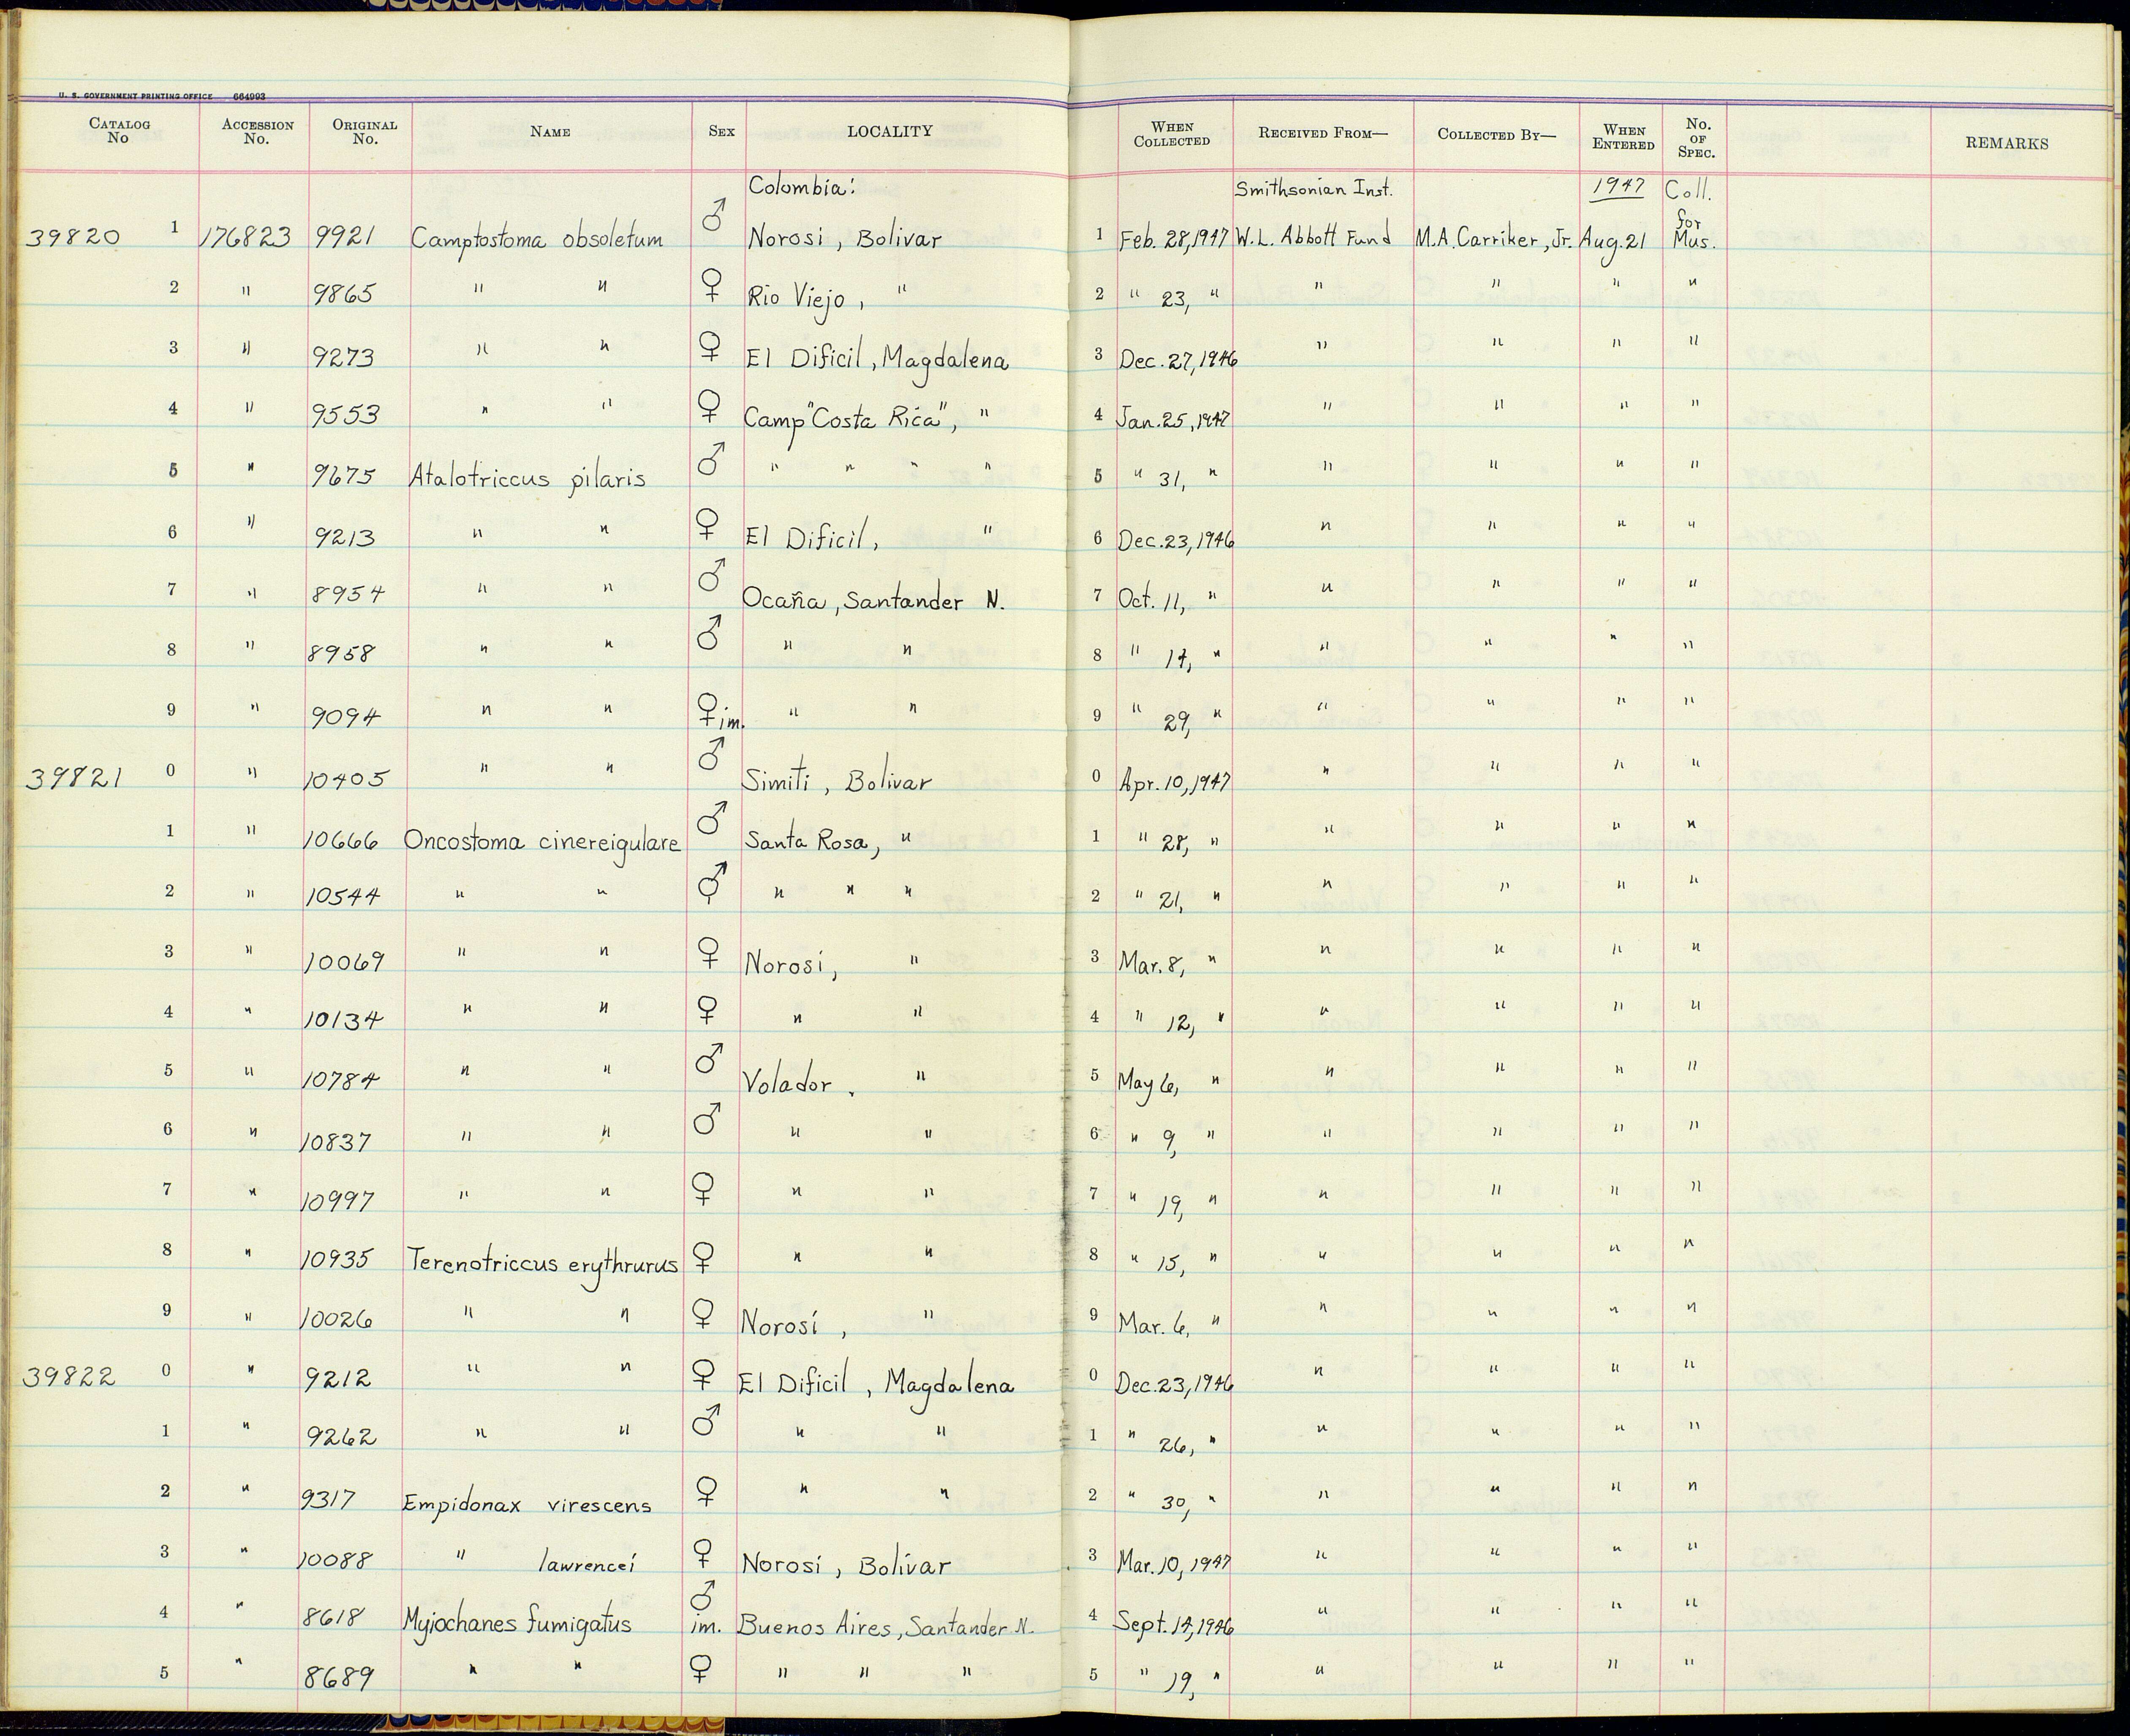 U. S. GOVERNMENT PRINTING OFFICE 664993
CATALOG No ACCESSION No. ORIGINAL No. NAME SEX LOCALITY WHEN COLLECTED RECEIVED FROM— COLLECTED BY— WHEN ENTERED No. OF SPEC. REMARKS
Colombia: Smithsonian Inst. 1947 Coll. for
39820 1 176823 9921 Camptostoma obsoletum ♂ Norosi, Bolivar 1 Feb. 28, 1947 W.L. Abbott Fund M.A. Carriker, Jr. Aug. 21 Mus.
2 " 9865 " " ♀ Rio Viejo, " 2 " 23, " " " " "
3 " 9273 " " ♀ El Dificil, Magdalena 3 Dec. 27, 1946 " " " "
4 " 9553 " " ♀ Camp "Costa Rica", " 4 Jan. 25, 1947 " " " "
5 " 9675 Atalotriccus pilaris ♂ " " " " 5 " 31, " " " " "
6 " 9213 " " ♀ El Dificil, " 6 Dec. 23, 1946 " " " "
7 " 8954 " " ♂ Ocaña, Santander N. 7 Oct. 11, " " " " "
8 " 8958 " " ♂ " " 8 " 14, " " " " "
9 " 9094 " " ♀ im. " " 9 " 29, " " " " "
39821 0 " 10405 " " ♂ Simiti, Bolivar 0 Apr. 10, 1947 " " " "
1 " 10666 Oncostoma cinereigulare ♂ Santa Rosa, " 1 " 28, " " " " "
2 " 10544 " " " " " 2 " 21, " " " " "
3 " 10069 " " ♀ Norosi, " 3 Mar. 8, " " " " "
4 " 10134 " " ♀ " " 4 " 12, " " " " "
5 " 10784 " " ♂ Volador, " 5 May 6, " " " " "
6 " 10837 " " ♂ " " 6 " 9, " " " " "
7 " 10997 " " ♀ " " 7 " 19, " " " " "
8 " 10935 Terenotriccus erythrurus ♀ " " 8 " 15, " " " " "
9 " 10026 " " ♀ Norosí, " 9 Mar. 6, " " " " "
39822 0 " 9212 " " ♀ El Dificil, Magdalena 0 Dec. 23, 1946 " " " "
1 " 9262 " " ♂ " " 1 " 26, " " " " "
2 " 9317 Empidonax virescens ♀ " " 2 " 30, " " " " "
3 " 10088 " lawrencei ♀ Norosí, Bolívar 3 Mar. 10, 1947 " " " "
4 " 8618 Myiochanes fumigatus ♂ im. Buenos Aires, Santander N. 4 Sept. 14, 1946 " " " "
5 " 8689 " " ♀ " " " 5 " 19, " " " " "